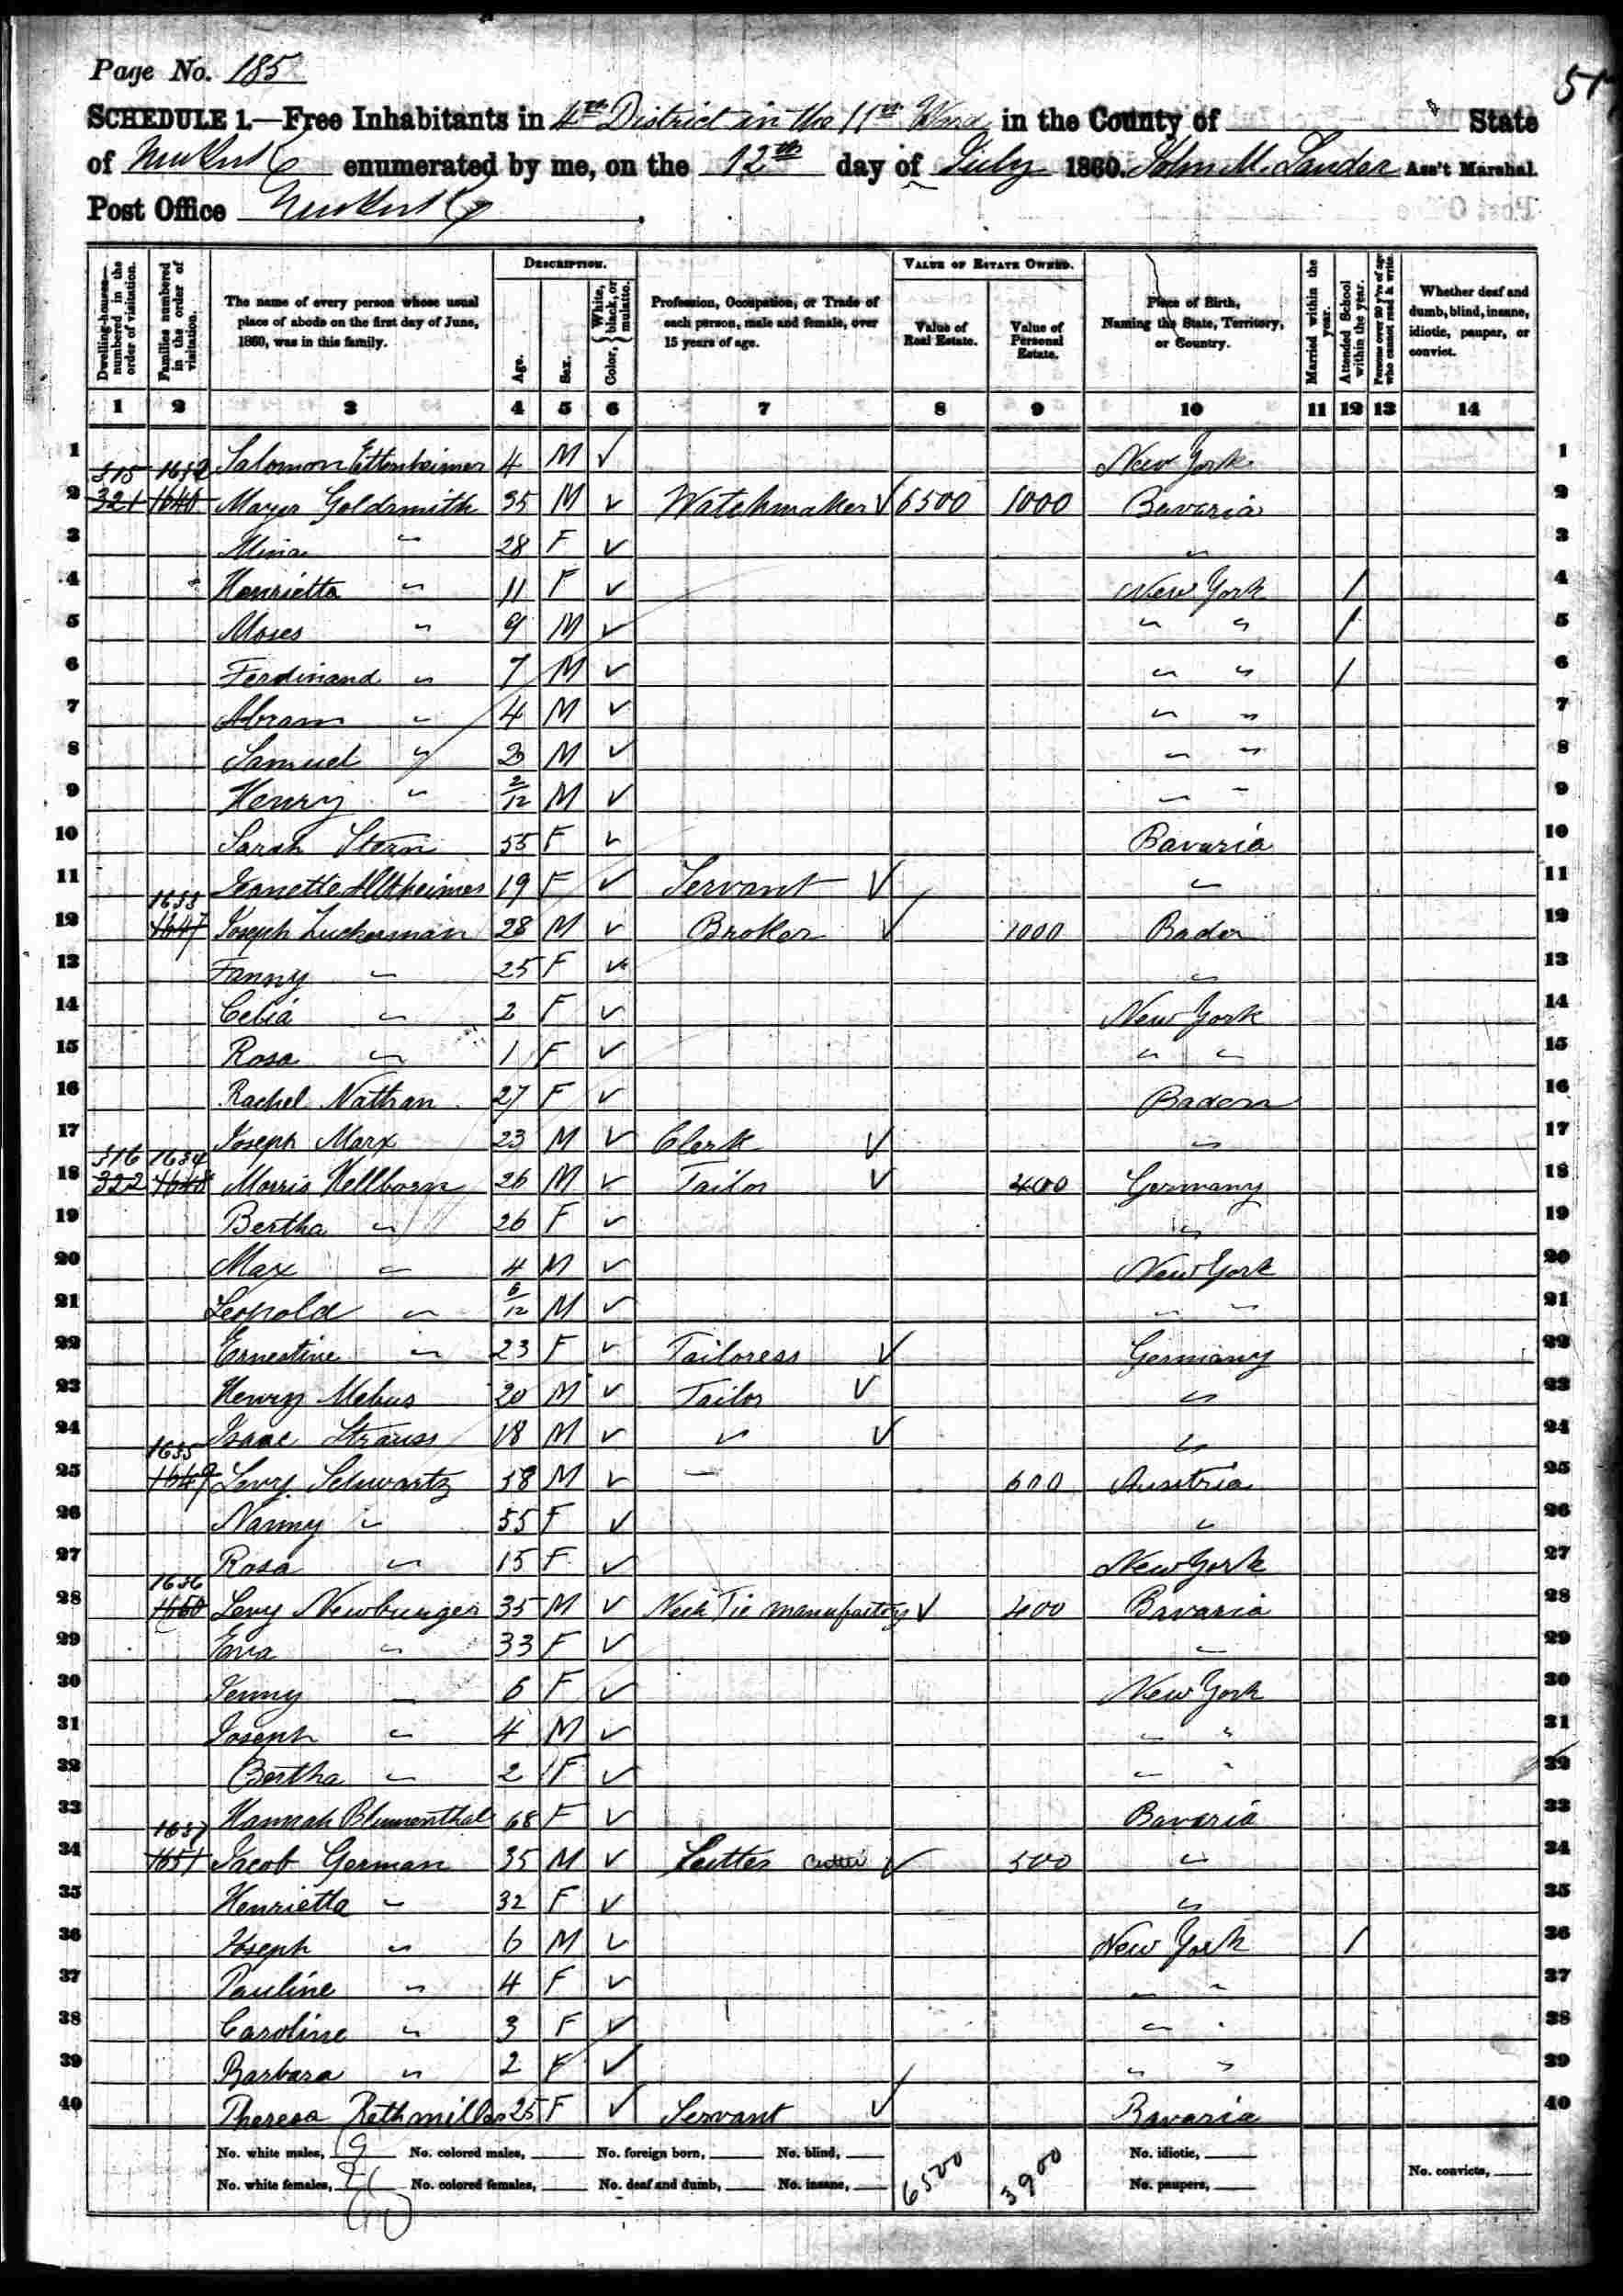 Page No. 185
51
SCHEDULE 1.—Free Inhabitants in 4th District in the 11th Ward in the County of State
of New York enumerated by me, on the 12th day of July 1860. John M. Lauder Ass't Marshal.
Post Office New York
DESCRIPTION. VALUE OF ESTATE OWNED.
Dwelling-houses—numbered in the order of visitation. Families numbered in the order of visitation. The name of every person whose usual place of abode on the first day of June, 1860, was in this family. Age. Sex. Color, White, black, or mulatto. Profession, Occupation, or Trade of each person, male and female, over 15 years of age. Value of Real Estate. Value of Personal Estate. Place of Birth, Naming the State, Territory, or Country. Married within the year. Attended School within the year. Persons over 20 y'rs of age who cannot read & write. Whether deaf and dumb, blind, insane, idiotic, pauper, or convict.
1 2 3 4 5 6 7 8 9 10 11 12 13 14
1 Salomon Ettenheimer 4 M ✓ New York 1
315 1632
2 321 1646 Mayer Goldsmith 35 M ✓ Watchmaker ✓ 6500 1000 Bavaria 2
3 Mina " 28 F ✓ " 3
4 Henrietta " 11 F ✓ New York / 4
5 Moses " 9 M ✓ " " / 5
6 Ferdinand " 7 M ✓ " " / 6
7 Abram " 4 M ✓ " " 7
8 Samuel " 2 M ✓ " " 8
9 Henry " 2/12 M ✓ " " 9
10 Sarah Stern 55 F ✓ Bavaria 10
11 Jeanette Altheimer 19 F ✓ Servant ✓ " 11
1633
12 1647 Joseph Zuckerman 28 M ✓ Broker ✓ 1000 Baden 12
13 Fanny " 25 F ✓ " 13
14 Celia " 2 F ✓ New York 14
15 Rosa " 1 F ✓ " " 15
16 Rachel Nathan 27 F ✓ Baden 16
17 Joseph Marx 23 M ✓ Clerk ✓ " 17
316 1634
18 322 1648 Morris Hellborn 26 M ✓ Tailor ✓ 400 Germany 18
19 Bertha " 26 F ✓ " 19
20 Max " 4 M ✓ New York 20
21 Leopold " 6/12 M ✓ " " 21
22 Ernestine " 23 F ✓ Tailoress ✓ Germany 22
23 Henry Mebus 20 M ✓ Tailor ✓ " 23
24 Isaac Strauss 18 M ✓ " ✓ " 24
1635
25 1649 Levy Schwartz 58 M ✓ — 600 Austria 25
26 Nanny " 55 F ✓ " 26
27 Rosa " 15 F ✓ New York 27
1636
28 1650 Levy Newburger 35 M ✓ Neck Tie manufactory ✓ 400 Bavaria 28
29 Eva " 33 F ✓ " 29
30 Jenny " 6 F ✓ New York 30
31 Joseph " 4 M ✓ " " 31
32 Bertha " 2 F ✓ " " 32
33 Hannah Blumenthal 68 F ✓ Bavaria 33
1637
34 1651 Jacob German 35 M ✓ Cutter ✓ 500 " 34
35 Henrietta " 32 F ✓ " 35
36 Joseph " 6 M ✓ New York / 36
37 Pauline " 4 F ✓ " " 37
38 Caroline " 3 F ✓ " " 38
39 Barbara " 2 F ✓ " " 39
40 Theresa Rethmiller 25 F ✓ Servant ✓ Bavaria 40
No. white males, 19 No. colored males, No. foreign born, No. blind, 6500 3900 No. idiotic,
No. white females, 21 No. colored females, No. deaf and dumb, No. insane, No. paupers, No. convicts,